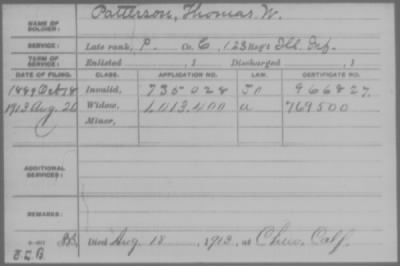 Patterson, Thomas W.
NAME OF SOLDIER:
SERVICE: Late rank, P. Co. C, 123 Reg't Ill. Inf.
TERM OF SERVICE: Enlisted , 1 Discharged , 1
DATE OF FILING. CLASS. APPLICATION NO. LAW. CERTIFICATE NO.
1889 Oct 18 Invalid, 735028 966827.
1913 Aug. 20 Widow, 1,013,400 a 769500
C Minor,
ADDITIONAL SERVICES:
REMARKS:
Died Aug. 18, 1913, at Chico, Calf.